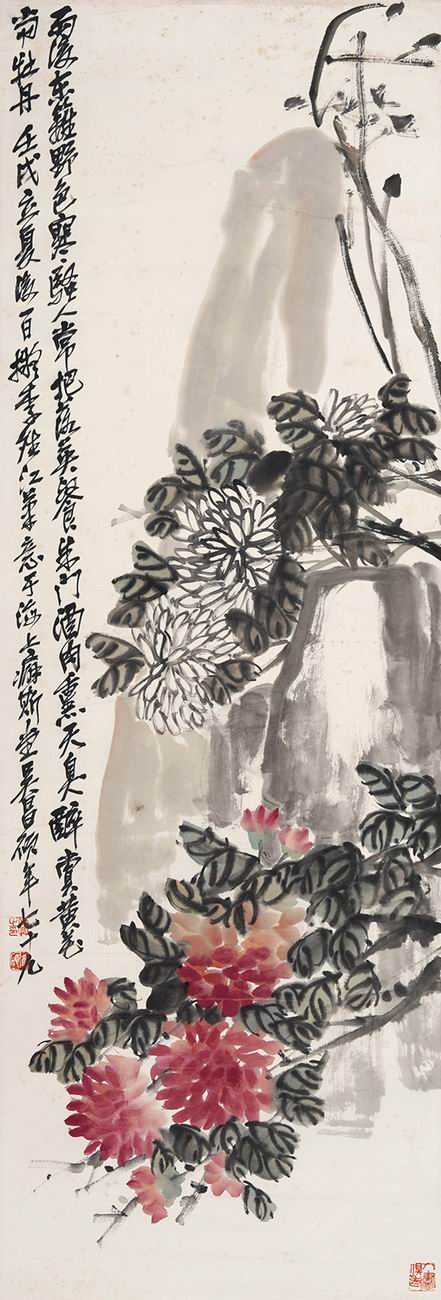 雨後東籬野色寒騷人常把落英餐朱門酒肉熏天臭醉賞黃花
當牡丹 壬戌立夏後一日擬李復堂筆意于海上癖斯堂吳昌碩年七十九